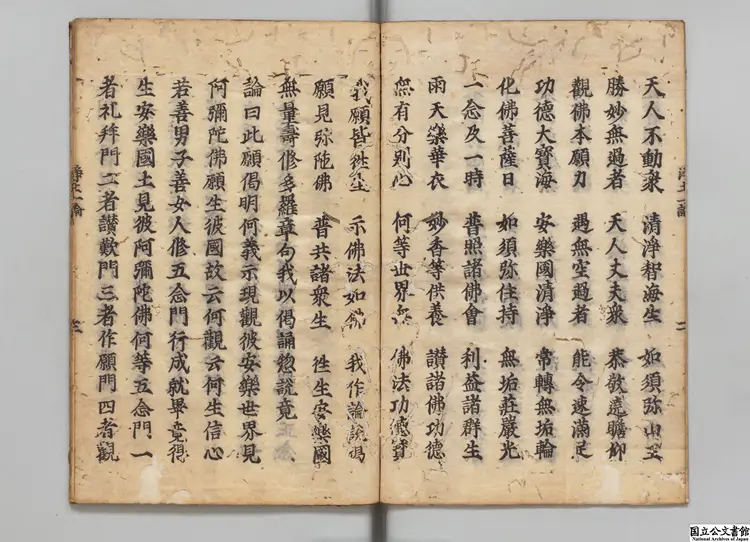 天人不動衆 清淨智海生 如須弥山王
勝妙無過者 天人丈夫衆 恭敬遶瞻仰
觀佛本願力 遇無空過者 能令速滿足
功德大寶海 安樂國清淨 常轉無垢輪
化佛菩薩日 如須弥住持 無垢莊嚴光
一念及一時 普照諸佛會 利益諸群生
雨天樂華衣 妙香等供養 讃諸佛功德
無有分別心 何等世界無 佛法功德寶
我願皆徃生 示佛法如佛 我作論説偈
願見弥陀佛 普共諸衆生 徃生安樂國
無量壽修多羅章句我以偈誦惣説竟
論曰此願偈明何義示現觀彼安樂世界見
阿彌陀佛願生彼國故云何觀云何生信心
若善男子善女人修五念門行成就畢竟得
生安樂國土見彼阿彌陀佛何等五念門一
者礼拜門二者讃歎門三者作願門四者觀
淨土論
国立公文書館
National Archives of Japan